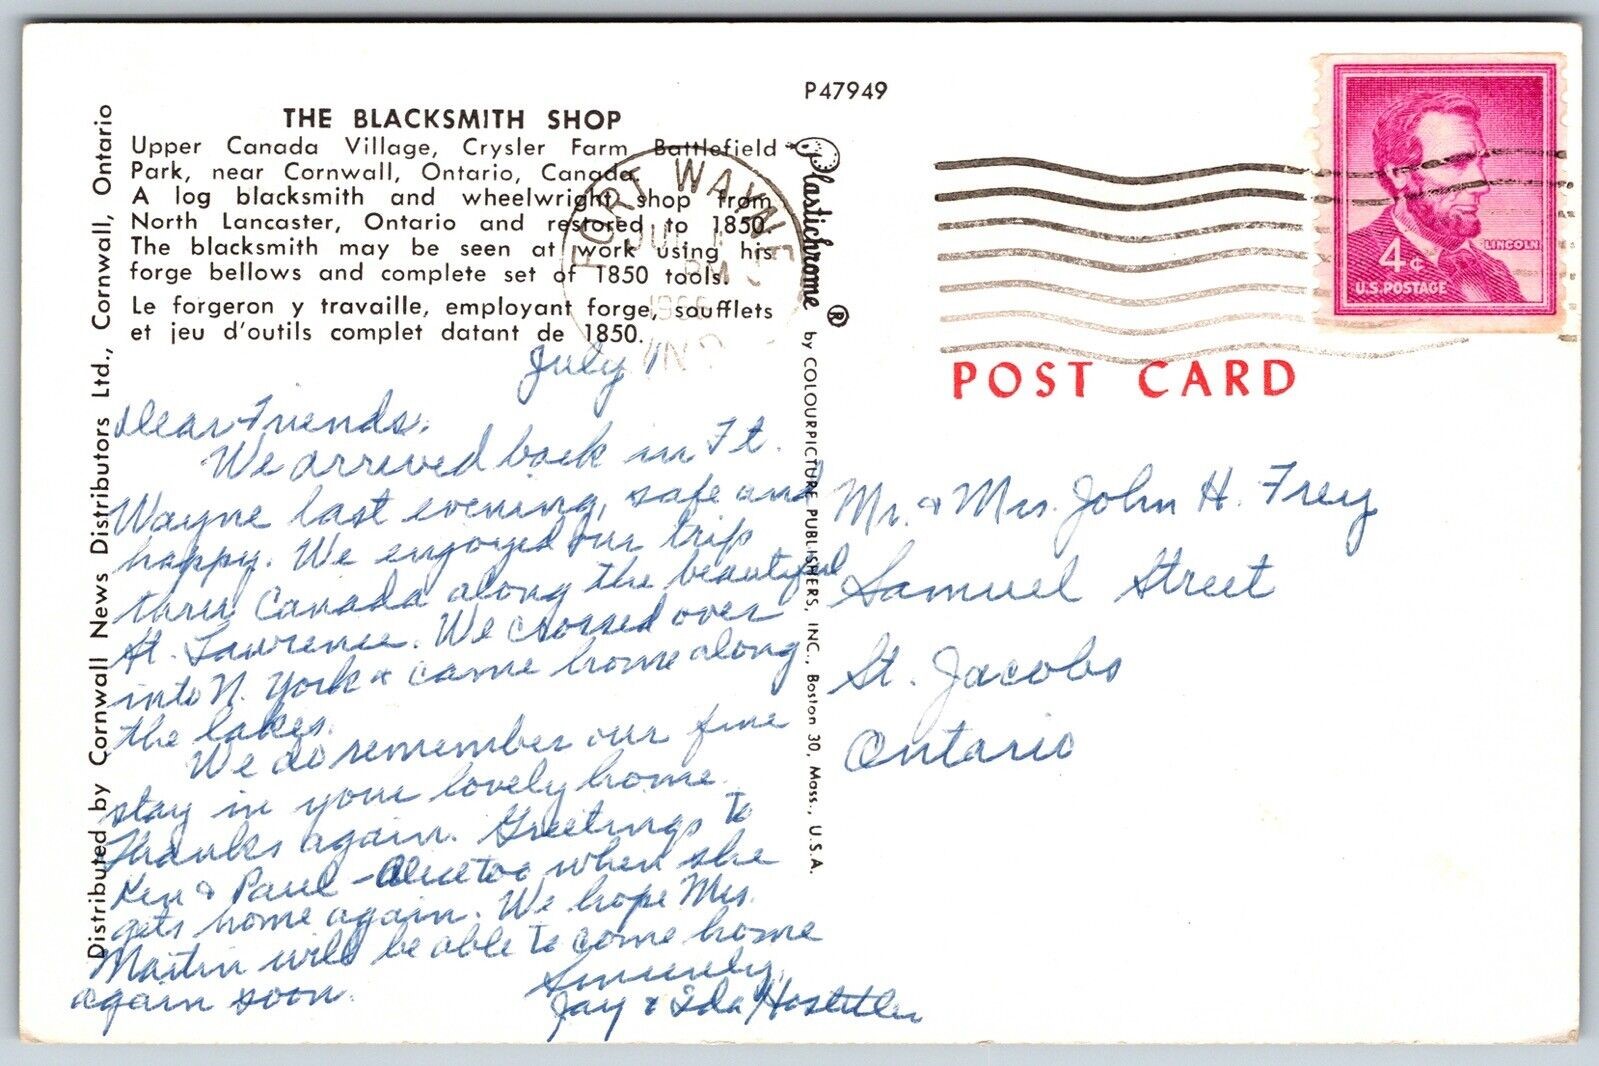 P47949
THE BLACKSMITH SHOP
Upper Canada Village, Crysler Farm Battlefield
Park, near Cornwall, Ontario, Canada.
A log blacksmith and wheelwright shop from
North Lancaster, Ontario and restored to 1850.
The blacksmith may be seen at work using his
forge bellows and complete set of 1850 tools.
Le forgeron y travaille, employant forge, soufflets
et jeu d'outils complet datant de 1850.
Distributed by Cornwall News Distributors Ltd., Cornwall, Ontario
FORT WAYNE
PM
IND
Plastichrome ® by COLOURPICTURE PUBLISHERS, INC., Boston 30, Mass., U.S.A.
LINCOLN
4¢
U.S. POSTAGE
POST CARD
July 1
Dear Friends,
We arrived back in Ft.
Wayne last evening, safe and
happy. We enjoyed our trip
thru Canada along the beautiful
St. Lawrence. We crossed over
into N. York & came home along
the lakes.
We do remember our fine
stay in your lovely home.
Thanks again. Greetings to
Ken & Paul - Alice too when she
gets home again. We hope Mrs.
Martin will be able to come home
again soon.
Sincerely,
Jay & Ida Hostetler
Mr. & Mrs. John H. Frey
Samuel Street
St. Jacobs
Ontario